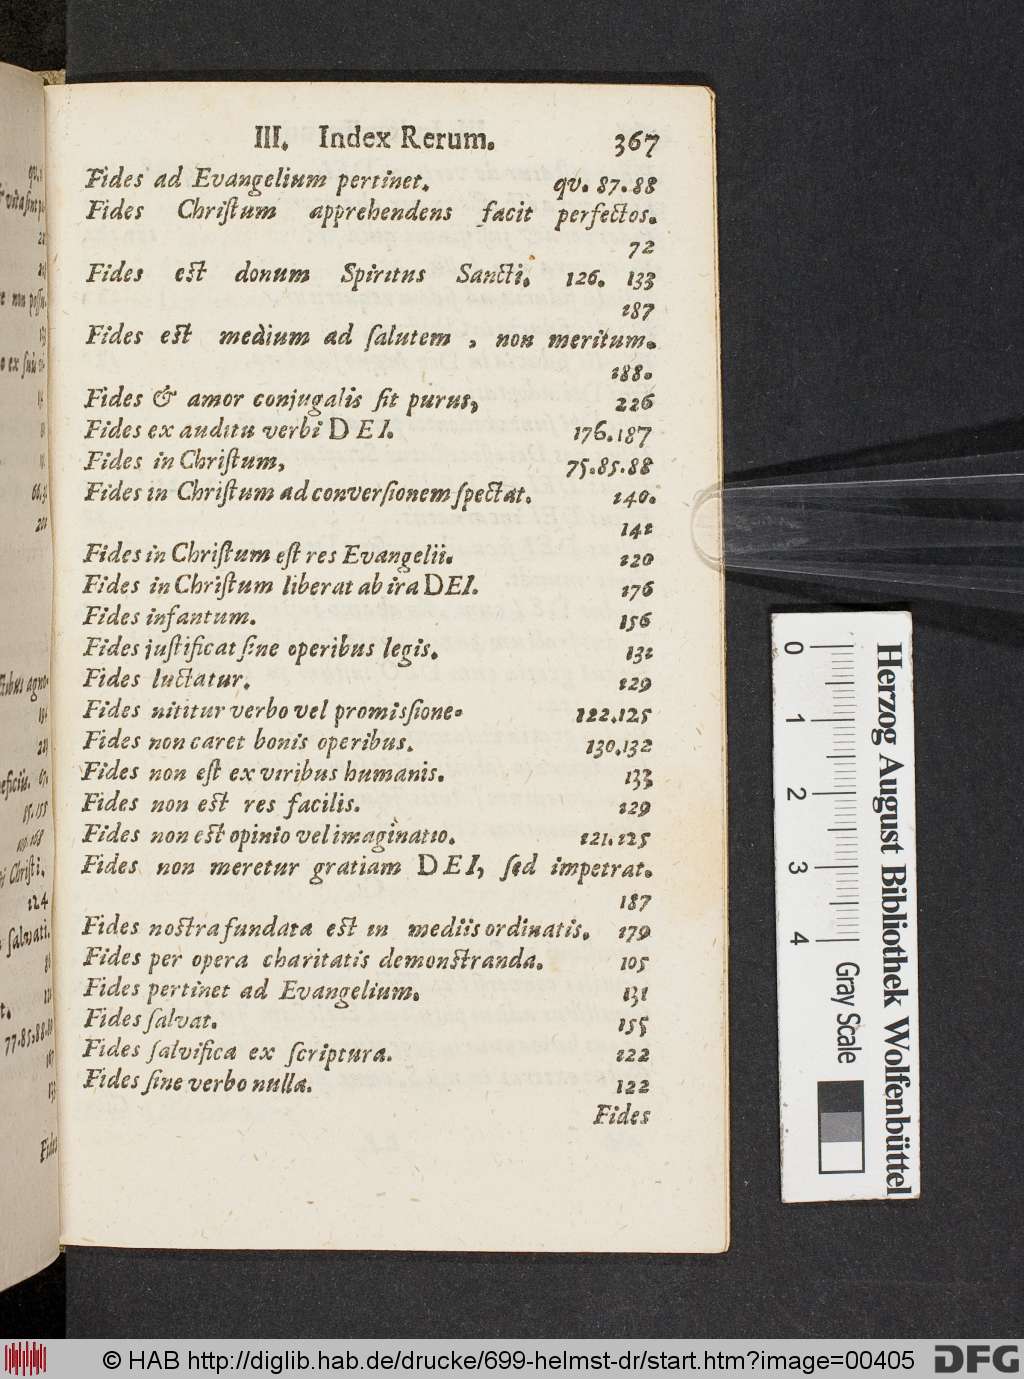 III. Index Rerum. 367
Fides ad Evangelium pertinet. qv. 87.88
Fides Chriſtum apprehendens facit perfectos.
72
Fides est donum Spiritus Sancti. 126. 133
187
Fides est medium ad ſalutem , non meritum.
188.
Fides & amor conjugalis ſit purus, 226
Fides ex auditu verbi DEI. 176.187
Fides in Chriſtum, 75.85.88
Fides in Chriſtum ad converſionem ſpectat. 140.
141
Fides in Chriſtum eſt res Evangelii. 120
Fides in Chriſtum liberat ab ira DEI. 176
Fides infantum. 156
Fides juſtificat ſine operibus legis. 131
Fides luctatur. 129
Fides nititur verbo vel promisſione. 122.125
Fides non caret bonis operibus. 130.132
Fides non eſt ex viribus humanis. 133
Fides non est res facilis. 129
Fides non est opinio vel imaginatio. 121.125
Fides non meretur gratiam DEI, ſed impetrat.
187
Fides nostra fundata est in mediis ordinatis. 179
Fides per opera charitatis demonstranda. 105
Fides pertinet ad Evangelium. 131
Fides ſalvat. 155
Fides ſalvifica ex ſcriptura. 122
Fides ſine verbo nulla. 122
Fides
0 1 2 3 4
Gray Scale
Herzog August Bibliothek Wolfenbüttel
© HAB http://diglib.hab.de/drucke/699-helmst-dr/start.htm?image=00405
DFG